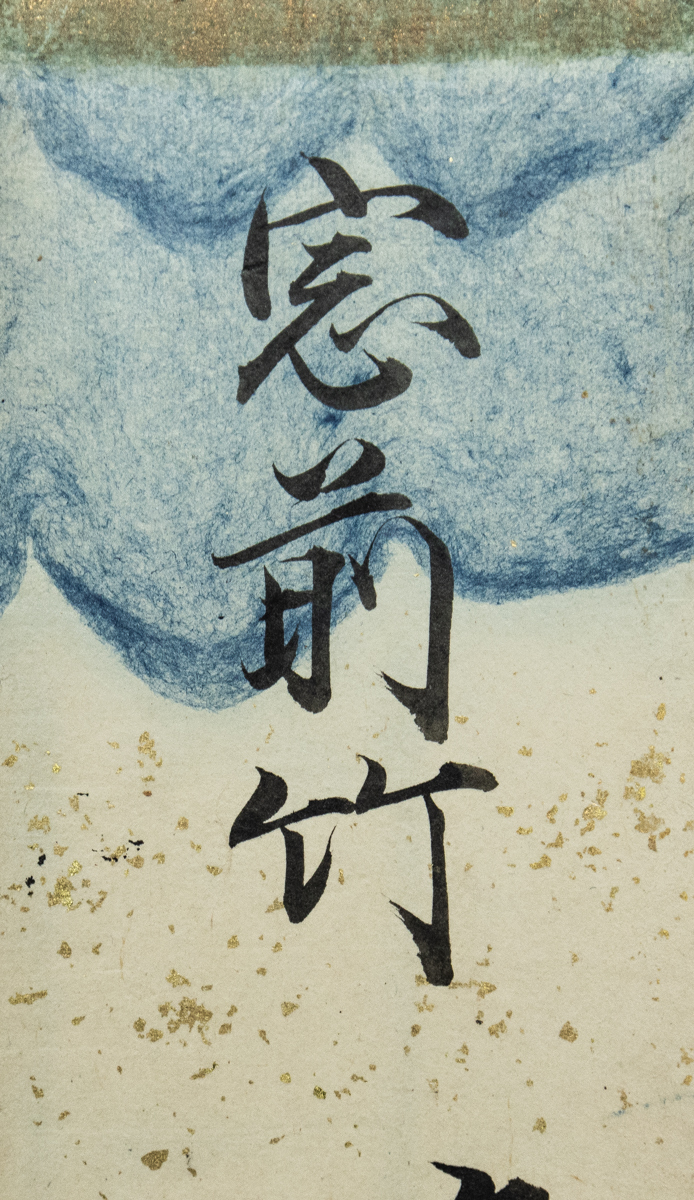 窓前竹